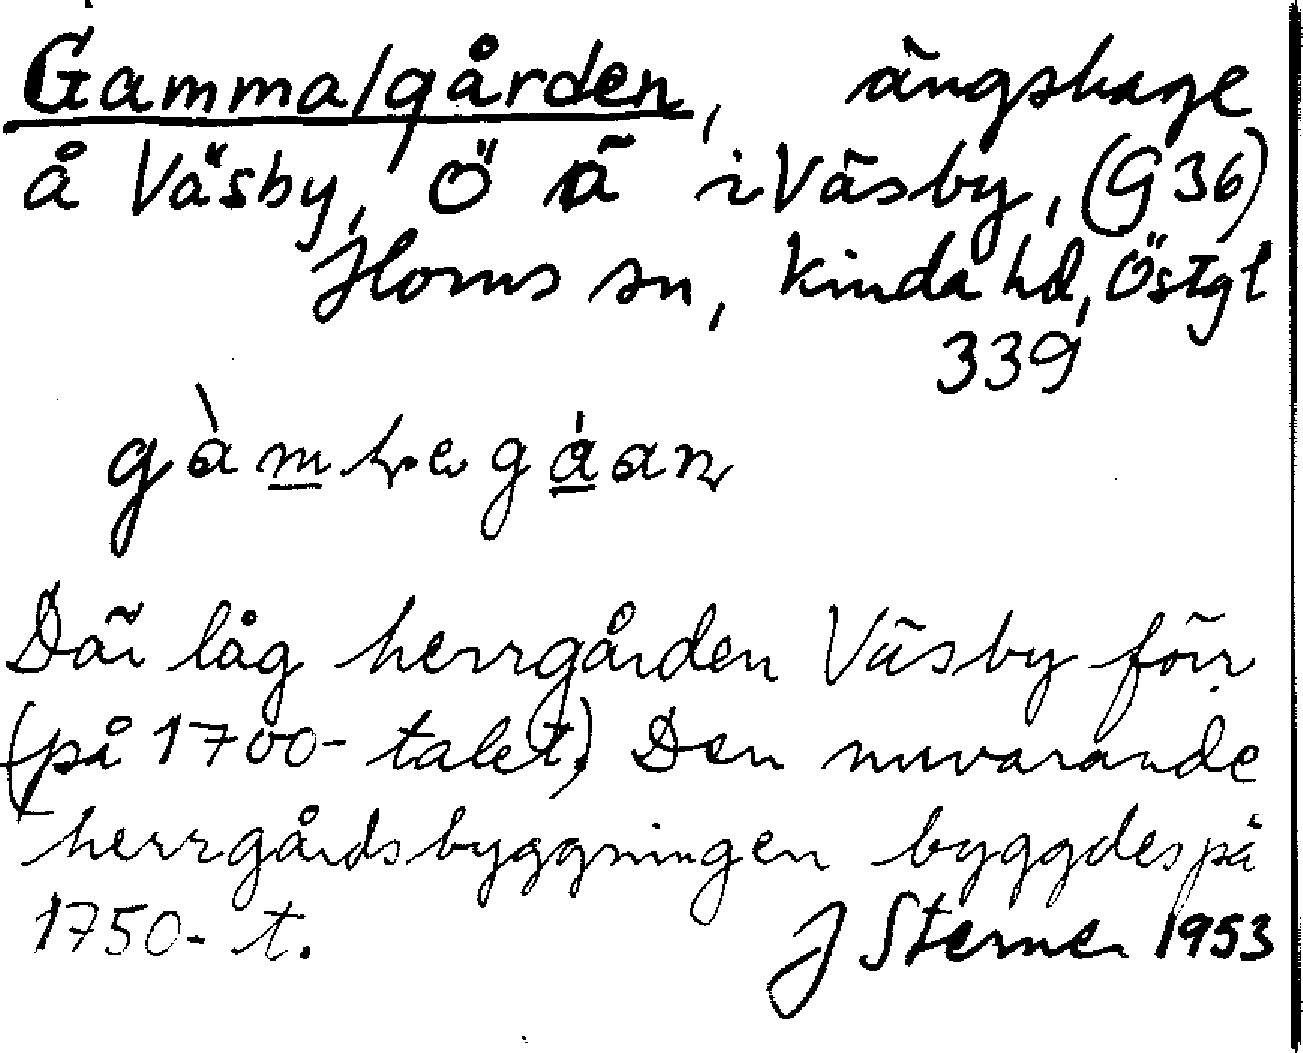 Gammalgården, ängshage
å Väsby, Ö ä i Väsby, (G 36)
Horns sn, Kinda hd, Östgl
339
Där låg herrgården Väsby förr
(på 1700-talet). Den nuvarande
herrgårdsbyggningen byggdes på
1750-t. J Sterner 1953